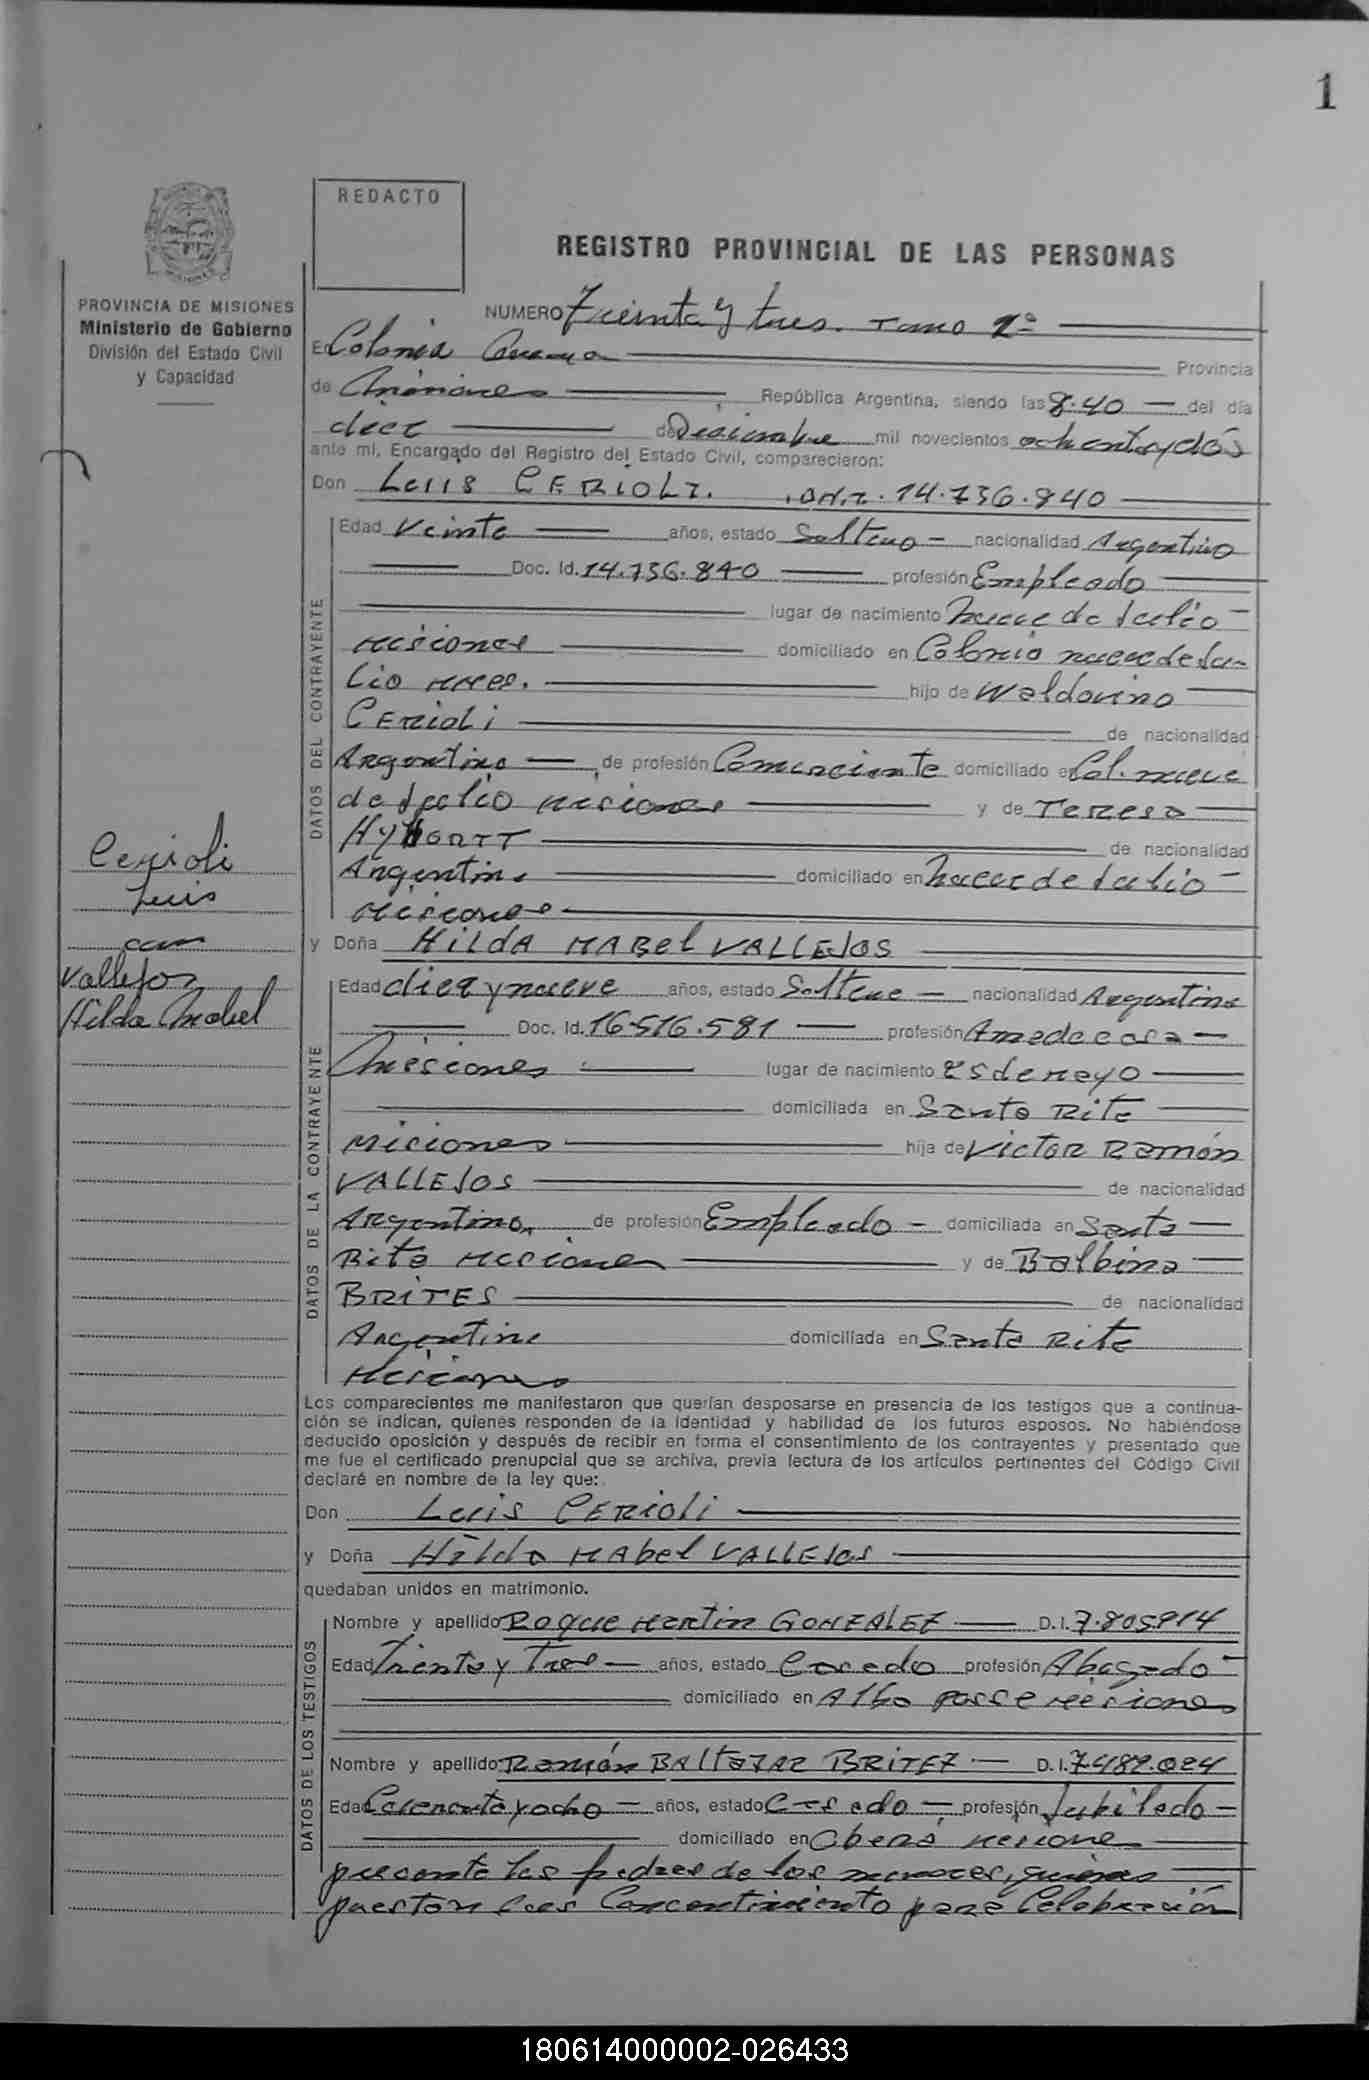 1
REDACTO
REGISTRO PROVINCIAL DE LAS PERSONAS
PROVINCIA DE MISIONES
Ministerio de Gobierno
División del Estado Civil
y Capacidad
NUMERO Treinta y tres. Tomo 2º
En Colonia Provincia
de Misiones República Argentina, siendo las 8.40 del día
diez de Diciembre mil novecientos ochenta y dós
ante mí, Encargado del Registro del Estado Civil, comparecieron:
Don Luis CERIOLI. 14.736.840
DATOS DEL CONTRAYENTE
Edad Veinte años, estado Soltero nacionalidad Argentino
Doc. Id. 14.736.840 profesión Empleado
lugar de nacimiento Nueve de Julio
Misiones domiciliado en Colonia nueve de Ju-
lio hijo de Waldovino
CERIOLI de nacionalidad
Argentino de profesión Comerciante domiciliado en Col. nueve
de Julio Misiones y de TERESA
de nacionalidad
Argentina domiciliado en Nueve de Julio
Misiones
Cerioli
Luis
con
Vallejos
Hilda Mabel
y Doña HILDA MABEL VALLEJOS
DATOS DE LA CONTRAYENTE
Edad diez y nueve años, estado Soltera nacionalidad Argentina
Doc. Id. 16.516.581 profesión Ama de casa
Misiones lugar de nacimiento 25 de Mayo
domiciliada en Santa Rita
Misiones hija de Victor Ramón
VALLEJOS de nacionalidad
Argentino, de profesión Empleado domiciliada en Santa
Rita Misiones y de Balbina
BRITES de nacionalidad
Argentina domiciliada en Santa Rita
Misiones
Los comparecientes me manifestaron que querían desposarse en presencia de los testigos que a continua-
ción se indican, quienes responden de la identidad y habilidad de los futuros esposos. No habiéndose
deducido oposición y después de recibir en forma el consentimiento de los contrayentes y presentado que
me fue el certificado prenupcial que se archiva, previa lectura de los artículos pertinentes del Código Civil
declaré en nombre de la ley que:
Don Luis CERIOLI
y Doña Hilda MAbel VALLEJOS
quedaban unidos en matrimonio.
DATOS DE LOS TESTIGOS
Nombre y apellido Roque Martin GONZALEZ D.I. 7.805.914
Edad Treinta y Tres años, estado Casado profesión Abogado
domiciliado en Misiones
Nombre y apellido Ramón BALTAZAR BRITEZ D.I. 7.489.024
Edad Cincuenta y ocho años, estado Casado profesión Jubilado
domiciliado en Oberá Misiones
presente los padres de los menores, quienes
prestan sus Consentimiento para Celebración
180614000002-026433